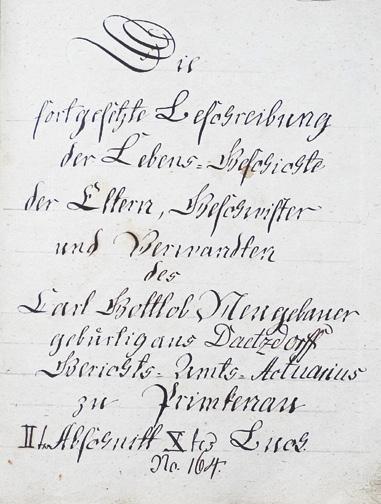 Die
fortgesetzte Beschreibung
der Lebens-Geschichte
der Eltern, Geschwister
und Verwandten
des
Carl Gottlob Neugebauer
gebürtig aus Daetzdorff
Gerichts-Amts-Actuarius
zu Primkenau
IIter Abschnitt Xtes Buch
No. 164.